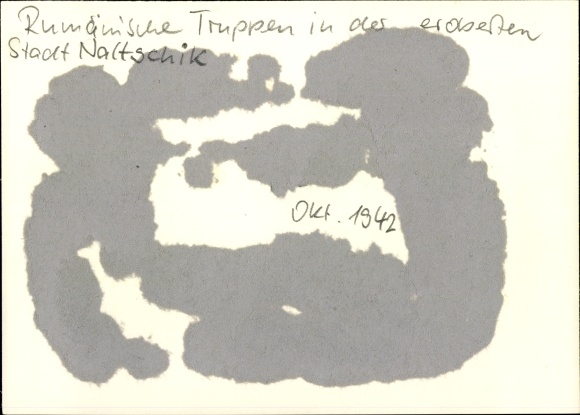 Rumänische Truppen in der eroberten
Stadt Naltschik
Okt. 1942